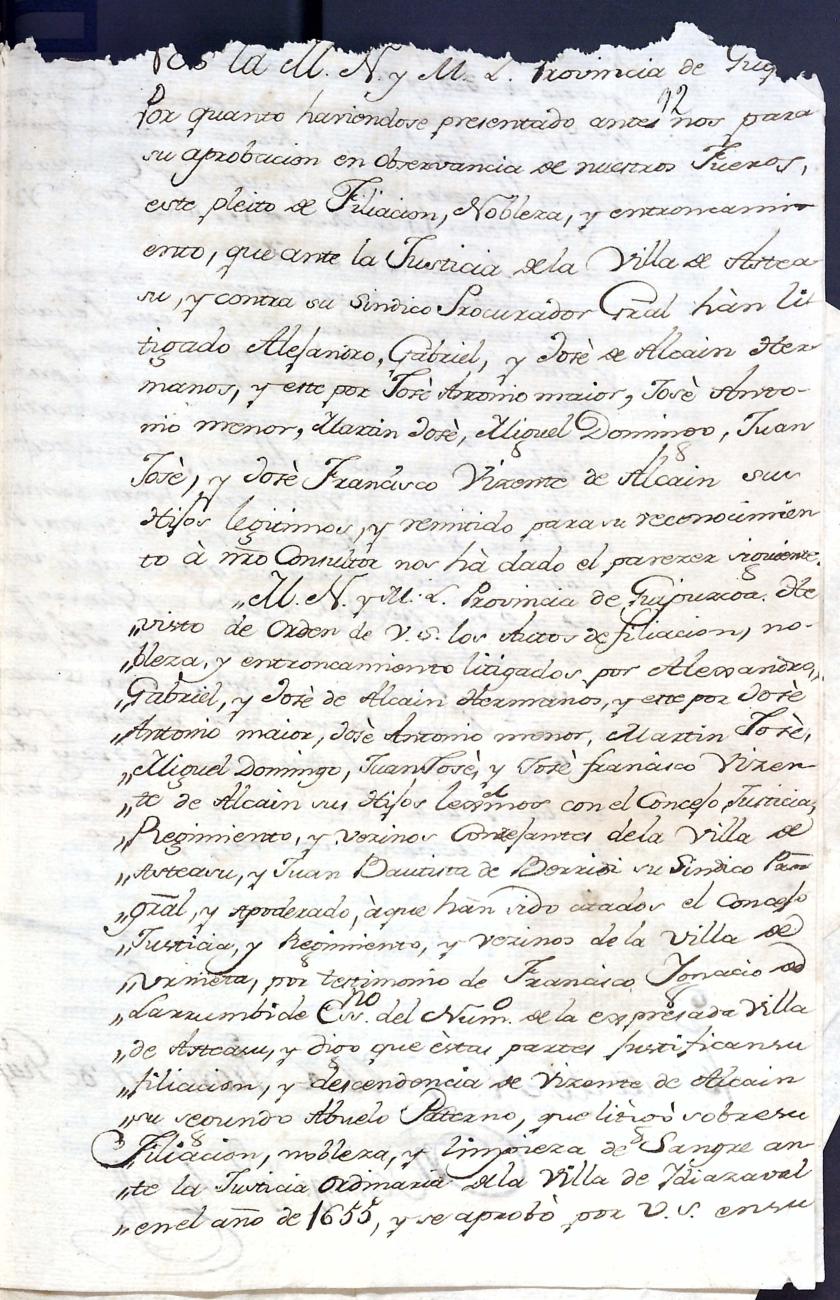 Nos la M. N. y M. L. Provincia de Guip
92
Por quanto haviendose presentado ante nos para
su aprobacion en observancia de nuestros Fueros,
este pleito de Filiacion, Nobleza, y entroncami-
ento, que ante la Justicia de la Villa de Astea-
su, y contra su Sindico Procurador Gral hàn lit
tigado Alejandro, Gabriel, y Josè de Alcain Her-
manos, y este por Josè Antonio maior, Josè Anto-
nio menor, Martin Josè, Miguel Domingo, Juan
Josè, y Josè Francisco Vizente de Alcain sus
Hijos legitimos, y remitido para su reconocimien
to à nrō Consultor nos hà dado el parezer siguiente.
„M. N. y M. L. Provincia de Guipuzcoa. He
„visto de Orden de V. S. los Autos de filiacion, no-
„bleza, y entroncamiento litigados por Alessandro,
„Gabriel, y Josè de Alcain Hermanos, y este por Josè
„Antonio maior, Josè Antonio menor, Martin Josè,
„Miguel Domingo, Juan Josè, y Josè francisco Vizen-
„te de Alcain sus Hijos lexmos con el Concejo, Justicia,
„Regimiento, y vezinos Conzejantes de la Villa de
„Asteasu, y Juan Bautista de Berridi su Sindico
„gral, y Apoderado, à que hàn sido citados el Concejo
„Justicia, y Regimiento, y vezinos de la Villa de
„Urnieta, por testimonio de Francisco Ignacio de
„Larrumbide Essno. del Numo. de la expresada Villa
„de Asteasu, y digo que èstas partes justifican su
„filiacion, y descendencia de Vizente de Alcain
„su segundo Abuelo Paterno, que litigò sobre su
„Filiacion, nobleza, y limpieza de Sangre an-
„te la Justicia Ordinaria de la Villa de Idiazaval
„en el año de 1655, y se aprobò por V. S. en su